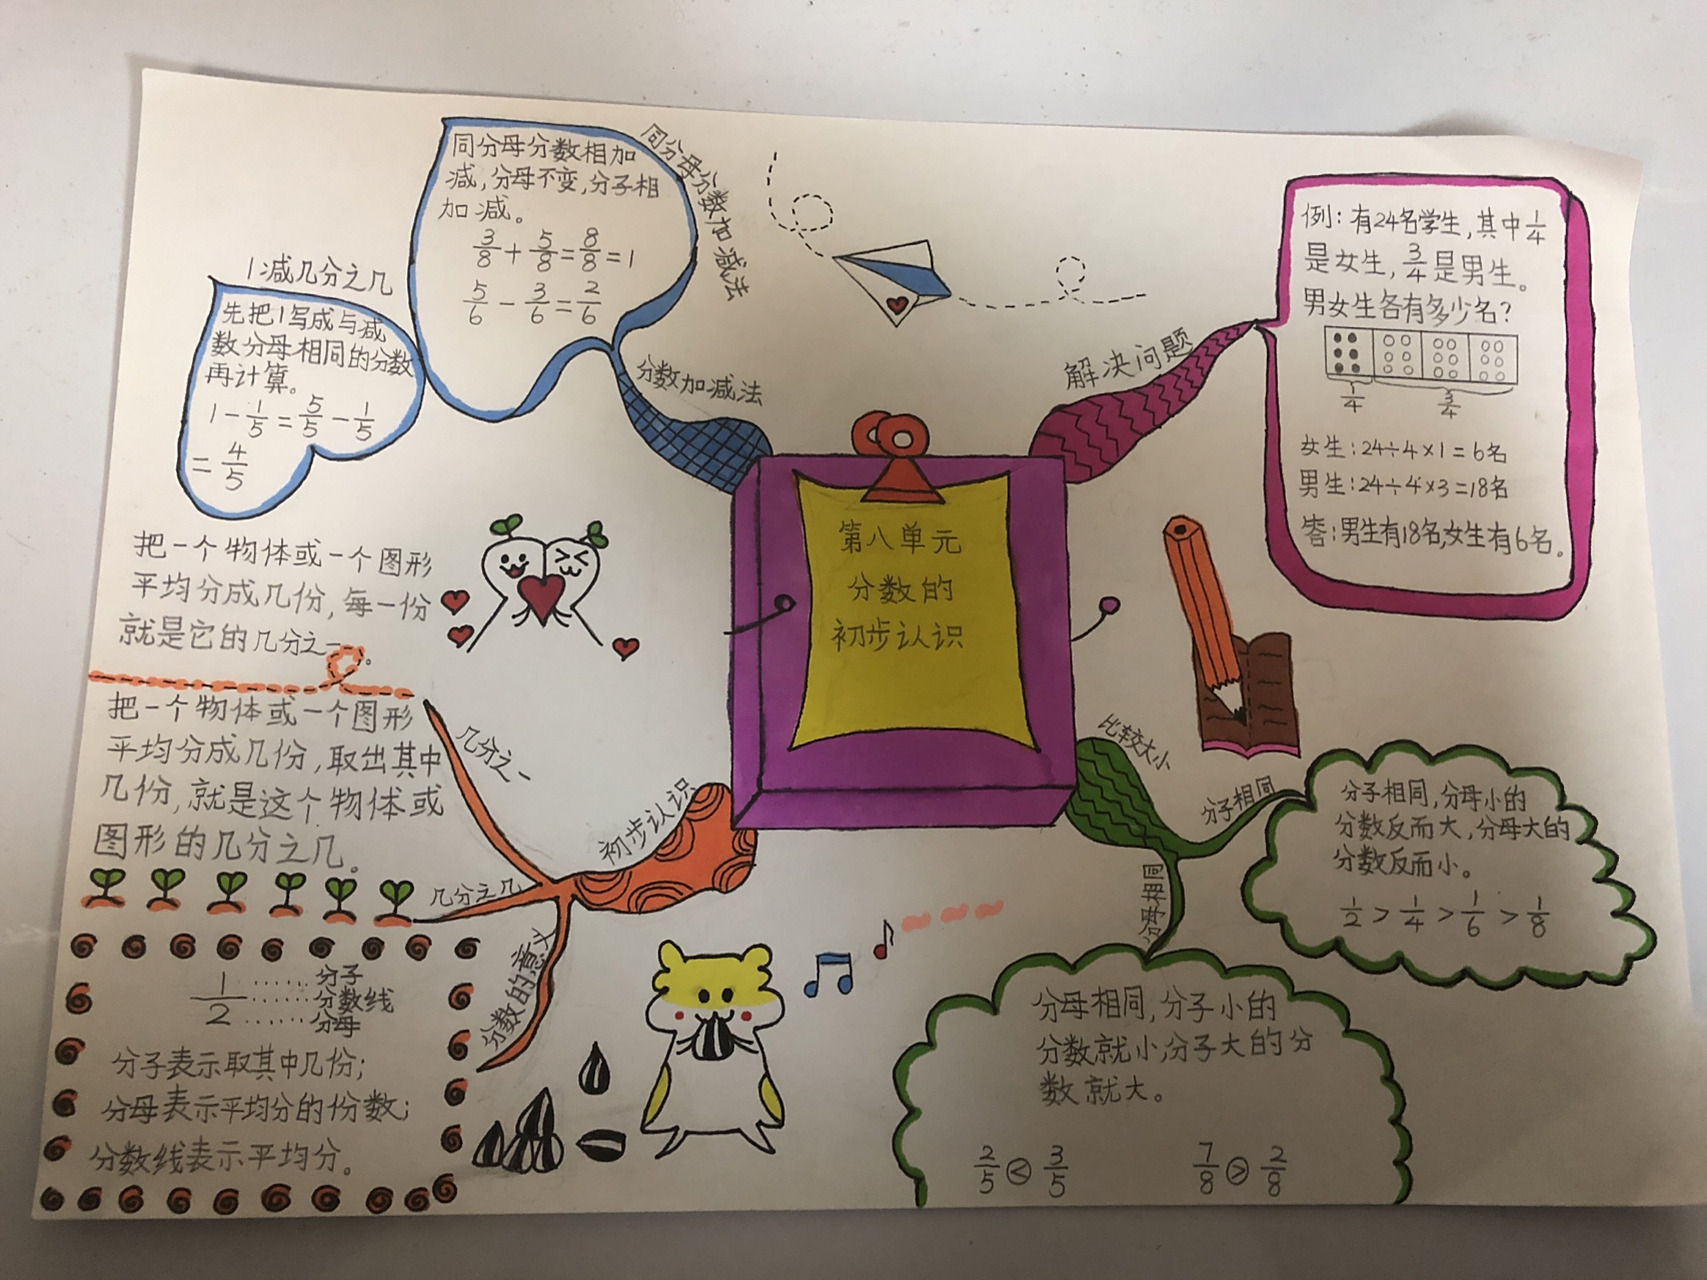 第八单元
分数的
初步认识
分数加减法
同分母分数加减法
同分母分数相加
减,分母不变,分子相
加减。
3/8+5/8=8/8=1
5/6-3/6=2/6
1减几分之几
先把1写成与减
数分母相同的分数
再计算。
1-1/5=5/5-1/5
=4/5
解决问题
例:有24名学生,其中1/4
是女生,3/4是男生。
男女生各有多少名?
1/4 3/4
女生:24÷4×1=6名
男生:24÷4×3=18名
答:男生有18名,女生有6名。
初步认识
几分之一
把一个物体或一个图形
平均分成几份,每一份
就是它的几分之一。
几分之几
把一个物体或一个图形
平均分成几份,取出其中
几份,就是这个物体或
图形的几分之几。
分数的意义
1……分子
……分数线
2……分母
分子表示取其中几份;
分母表示平均分的份数;
分数线表示平均分。
比较大小
分子相同
分子相同,分母小的
分数反而大,分母大的
分数反而小。
1/2>1/4>1/6>1/8
分母相同
分母相同,分子小的
分数就小,分子大的分
数就大。
2/5<3/5 7/8>2/8